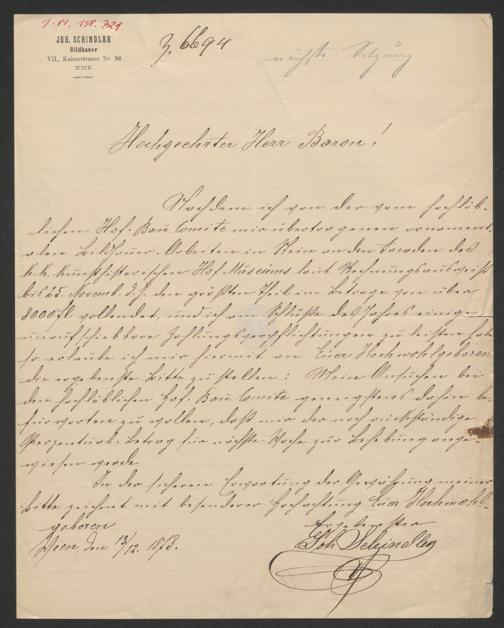 J. N. 158.721
JOH. SCHINDLER
Bildhauer
VII., Kaiserstrasse Nr. 96
WIEN.
Z. 6694
nächste Sitzung
Hochgeehrter Herr Baron!
Nachdem ich von der vom hochlöb-
lichen Hof-Bau Comité mir übertragenen ornament
alen Bildhauer-Arbeiten in Stein an den Facaden des
k. k. kunsthistorischen Hof Museums laut Rechnungsausweiß
bis 25. Novemb. d. J. den größten Theil im Betrage von über
8000 fl vollendet, und ich am Schluße des Jahres einige
unaufschiebbare Zahlungsverpflichtungen zu leisten habe
so erlaube ich mir hiermit an Euer Hochwohlgeboren
die ergebenste Bitte zu stellen: Mein Ansuchen bei
dem hochlöblichen Hof-Bau-Comité geneigtest dahin be-
fürworten zu wollen, daß mir der noch rückständige
Perzentual-Betrag für nächste Woche zur Behebung ange-
wiesen werde
In der sicheren Erwartung der Gewährung meiner
Bitte zeichnet mit besonderer Hochachtung Euer Hochwohl-
geboren
Ergebenster
Wien, den 13/12. 1878.
Joh Schindler